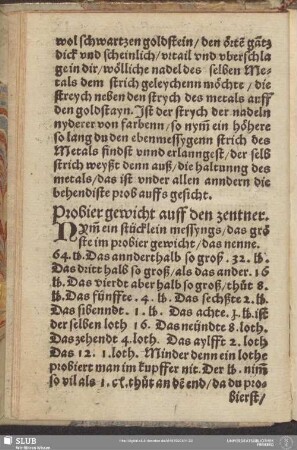 wol schwartzen goldstein / den örtē gātz
dick vnd scheinlich / vrtail vnd vberschla
ge in dir / wölliche nadel des selben Me⸗
tals dem strich geleychenn möcht / die
streych neben den strych des metals auff
den goldstayn. Ist der strych der nadeln
nyderer von farbenn / so nym̄ ein höhere
so lang du den ebenmessygenn strich des
Metals findst vnnd erlanngest / der selb
strich weyßt denn auß / die haltunng des
metals / das ist vnder allen anndern die
behendiste prob auffs gesicht.
Probier gewicht auff den zentner.
Nym̄ ein stücklein messyngs / das grö
ste im probier gewicht / das nenne.
64. lb. Das annderthalb so groß. 32. lb.
Das dritt halb so groß / als das ander. 16
lb. Das vierdt aber halb so groß / thůt 8.
lb. Das fünffte. 4. lb. Das sechßte 2. lb.
Das sibenndt. 1. lb. Das achte. ʒ. lb. ist
der selben loth 16. Das neündte 8. loth.
Das zehendt 4. loth. Das aylfft 2. loth
Das 12. 1. loth. Minder denn ein lothe
probiert man im kupffer nit. Der lb. nim̄
so vil als 1. ct. thůt an dē end / da du pro⸗
bierst /
SLUB
Wir führen Wissen.